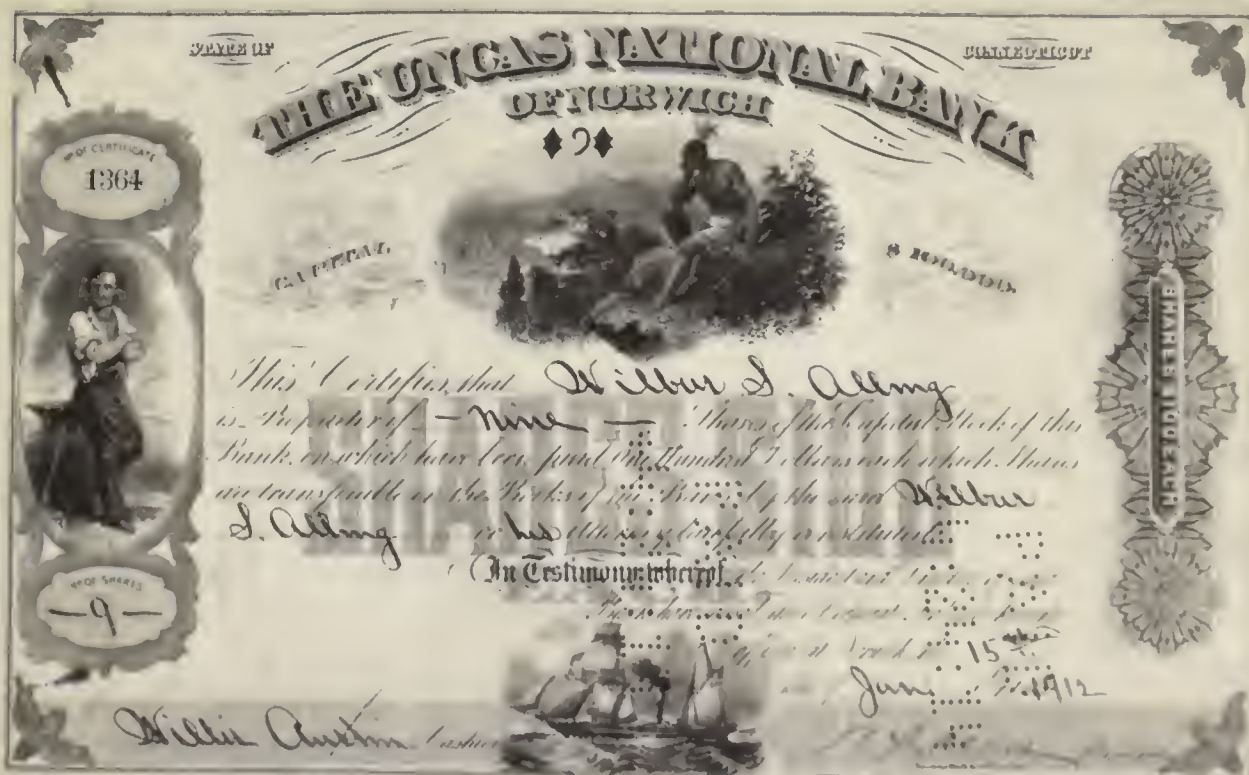 STATE OF
CONNECTICUT
THE UNCAS NATIONAL BANK
OF NORWICH
♦9♦
No OF CERTIFICATE
1364
CAPITAL
$ 100,000.
SHARES $100 EACH
This Certifies that Wilbur S. Alling
is Proprietor of — Nine — Shares of the Capital Stock of this
Bank, on which have been paid One Hundred Dollars each which Shares
are transferable on the Books of the Bank by the said Wilbur
S. Alling or his attorney lawfully constituted.
In Testimony whereof
No OF SHARES
— 9 —
15
1912
Willis Austin Cashier